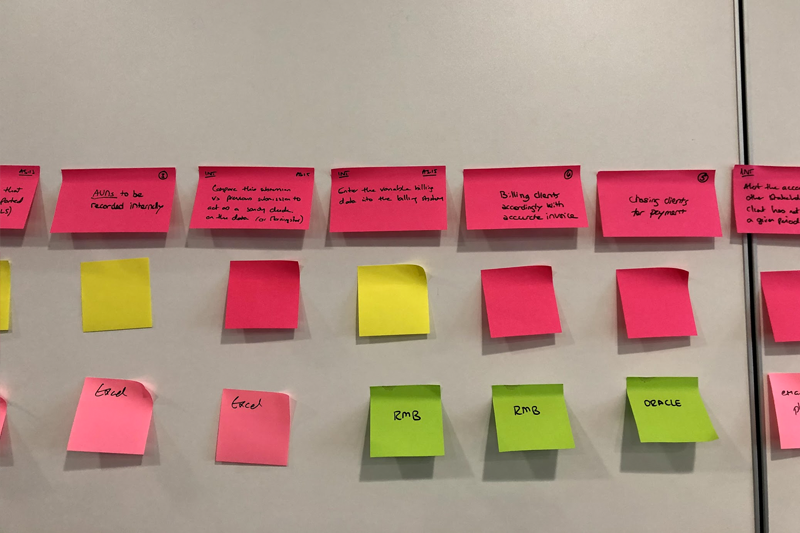 that
AUMs to be
recorded internally
INT
Compare this submission
vs previous submission to
act as a sanity check
on the data
INT
Enter the variable billing
data into the billing system
Billing clients
accordingly with
accurate invoice
Closing clients
for payment
INT
Alert the
other
client has
a given period
Excel
Excel
RMB
RMB
ORACLE